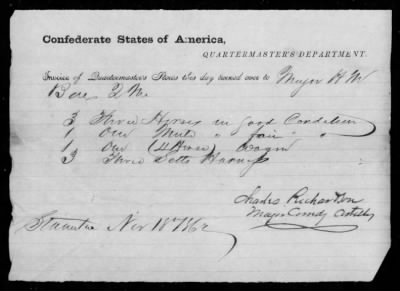 Confederate States of America,
QUARTERMASTER'S DEPARTMENT.
Invoice of Quartermaster's Stores this day turned over to Major H M
Bell Q M
3 Three Horses in good Condition
1 One Mule " fair "
1 One (4 Horse) Wagon
3 Three Setts Harness
Charles Richardson
Major Comdg Artillery
Staunton Nov 18th 1862